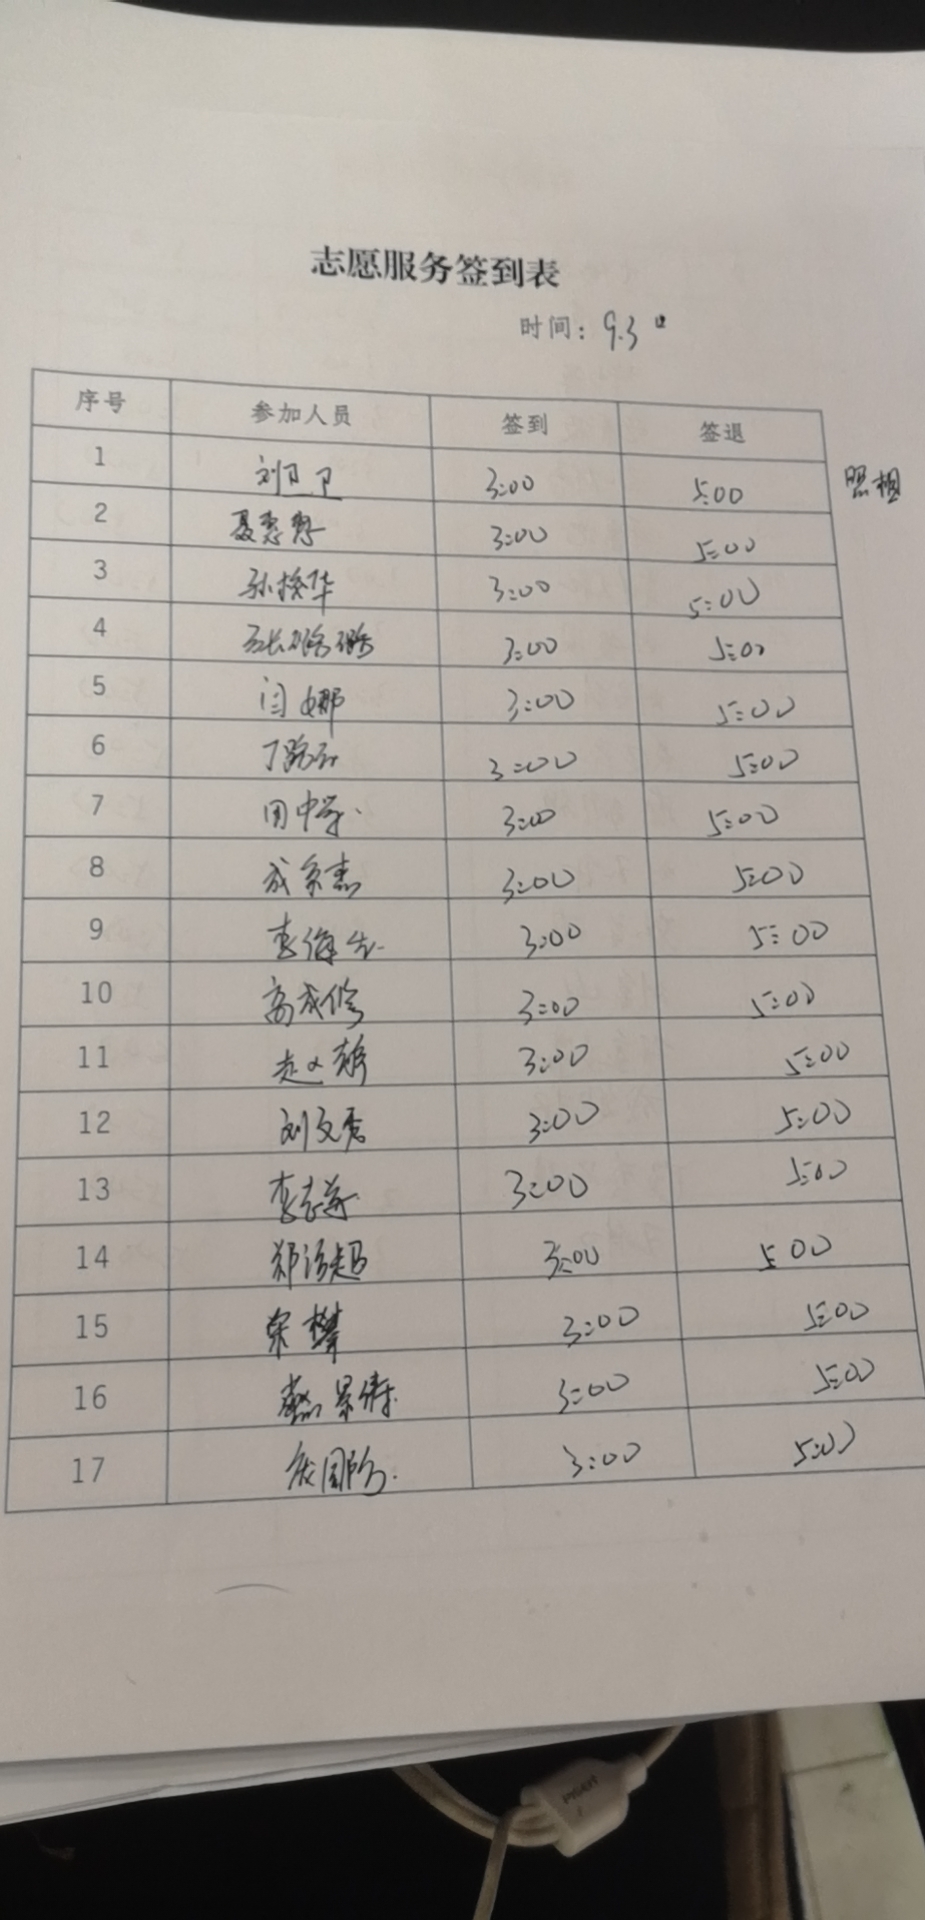 志愿服务签到表
时间: 9.3日
序号 参加人员 签到 签退
1 刘卫卫 3:00 5:00 照相
2 3:00 5:00
3 孙焕华 3:00 5:00
4 3:00 5:00
5 闫娜 3:00 5:00
6 3:00 5:00
7 田中学 3:00 5:00
8 3:00 5:00
9 3:00 5:00
10 高成修 3:00 5:00
11 3:00 5:00
12 刘文秀 3:00 5:00
13 3:00 5:00
14 3:00 5:00
15 宋攀 3:00 5:00
16 3:00 5:00
17 3:00 5:00